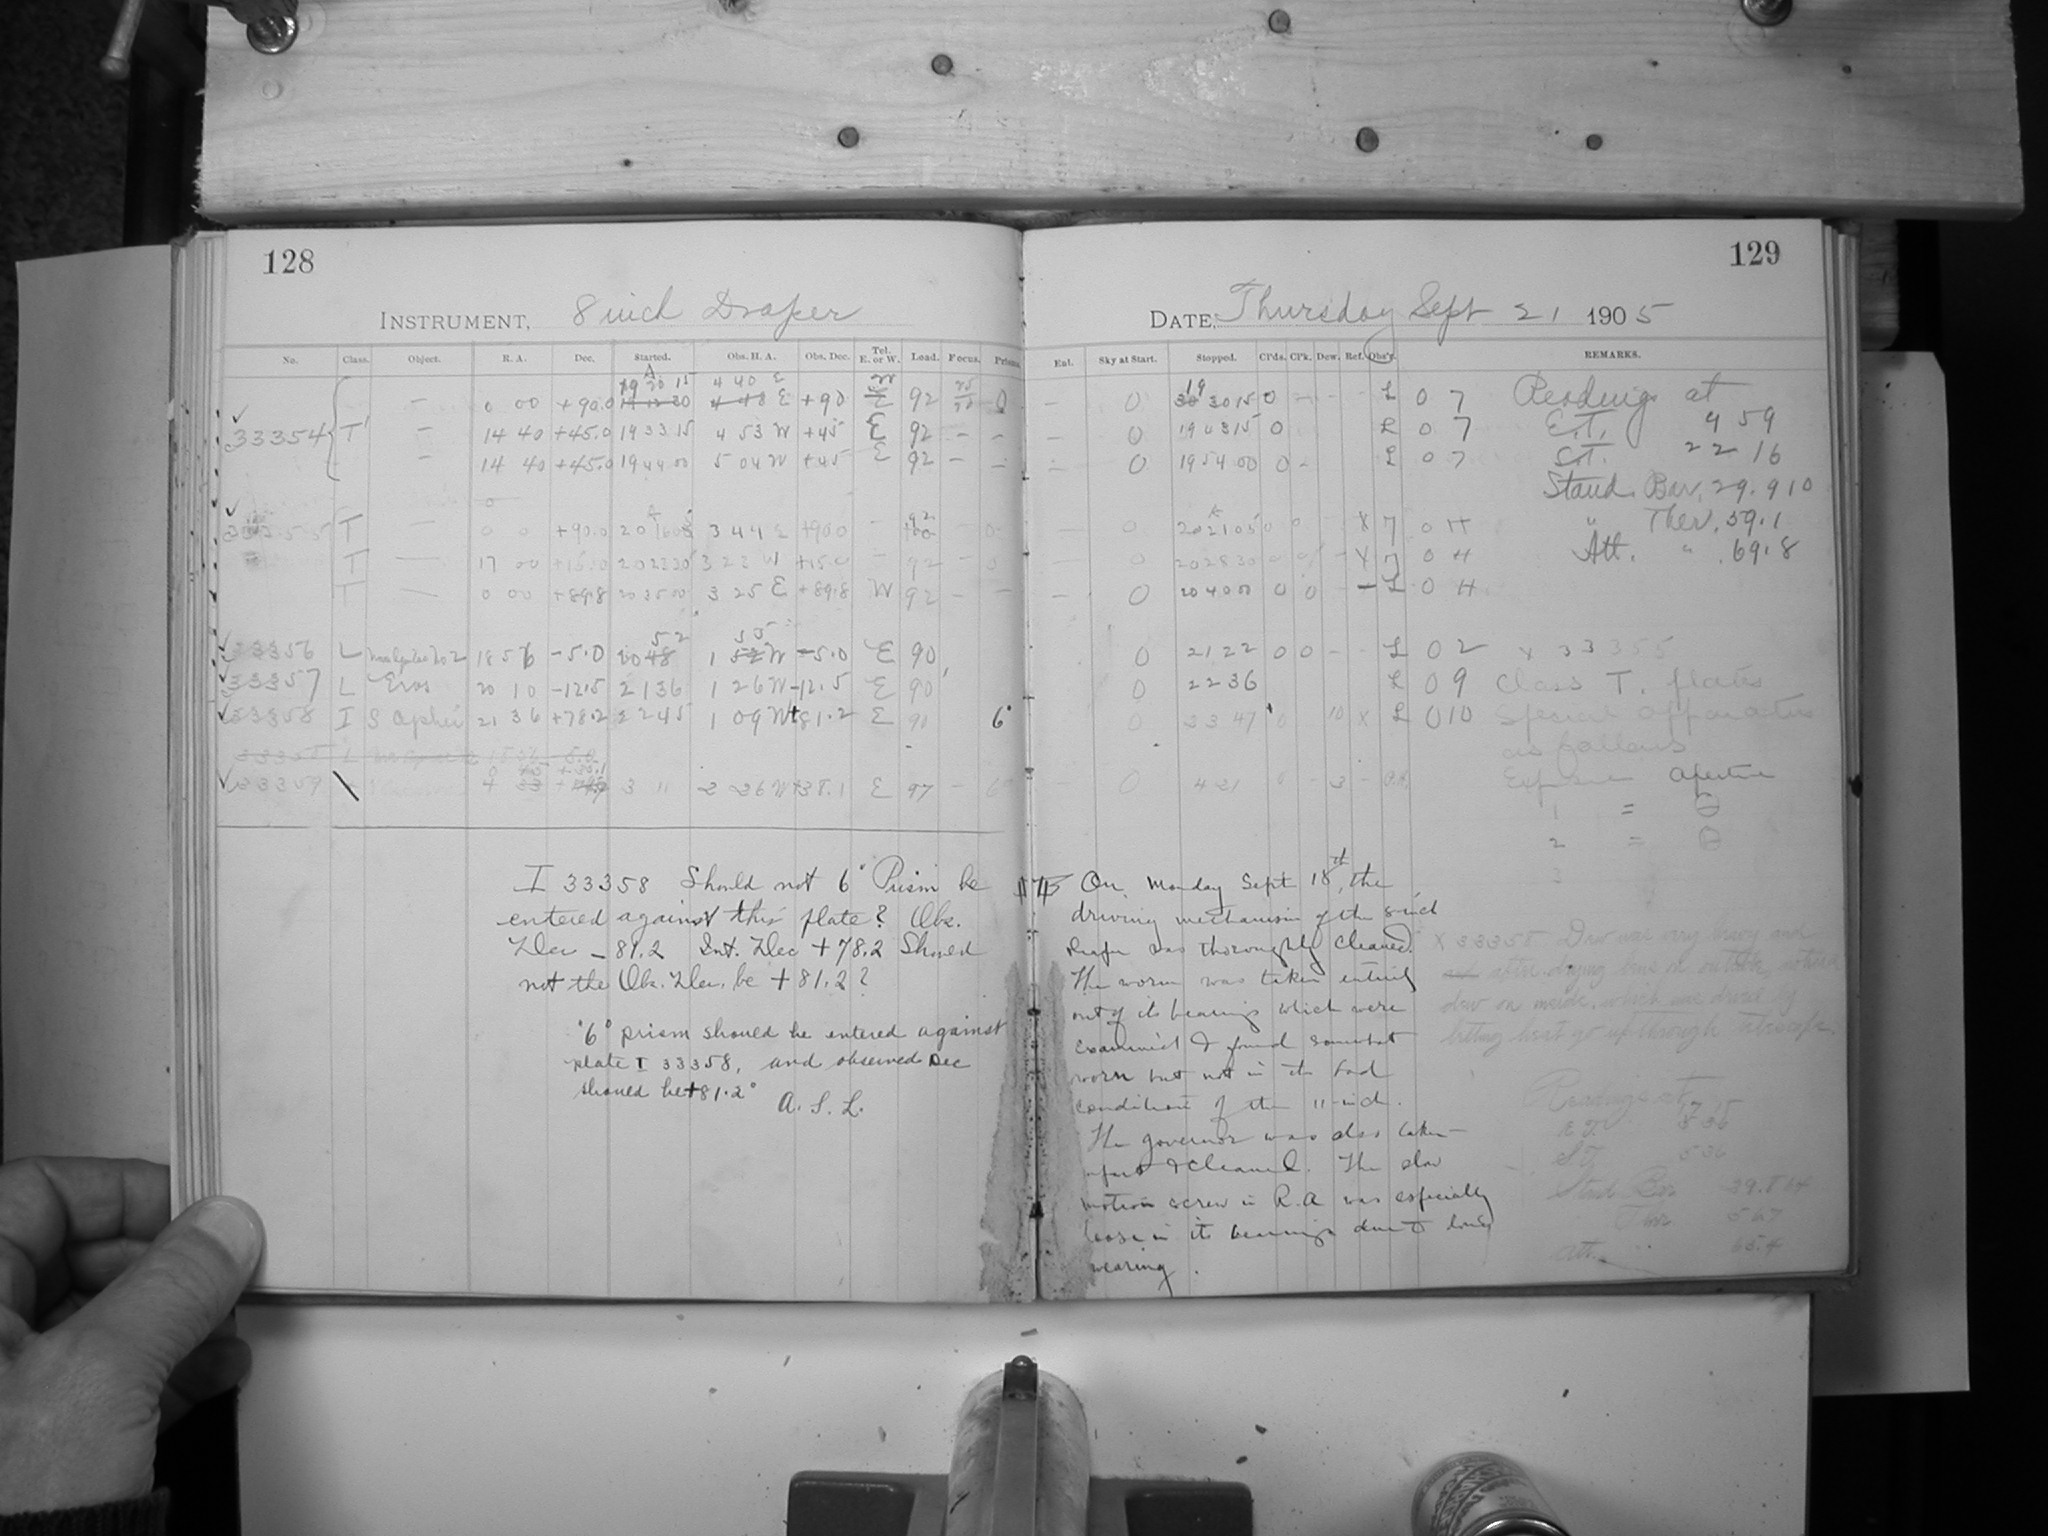 128
INSTRUMENT, 8 inch Draper
No. Class. Object. R. A. Dec. Started. Obs. H. A. Obs. Dec. Tel. E. or W. Load. Focus. Prism
A
19 20 15 4 40 E W
— 0 00 +90.0 E +90 E 92 0
33354 T' — 14 40 +45.0 19 33 15 4 53 W +45 E 92 — —
— 14 40 +45.0 19 44 00 5 04 W +45 E 92 — —
T — 0 0 +90.0 3 44 E +90.0 — 92
T — 17 00 +15.0 20 23 20 3 23 W +15.0 — 92 — 0
T — 0 00 +89.8 20 35 00 3 25 E +89.8 W 92 — —
52 55
33356 L 18 56 -5.0 20 48 1 52 W -5.0 E 90
33357 L Eros 20 10 -12.5 21 36 1 26 W -12.5 E 90
33358 I S 21 36 +78.2 22 45 1 09 W +81.2 E 90 6°
33359 3 11 2 26 W +38.1 E 97 —
I 33358 Should not 6° Prism be
entered against this plate? Obs.
Dec - 81.2 Int. Dec + 78.2 Should
not the Obs. Dec. be + 81.2?
6° prism should be entered against
plate I 33358, and observed Dec
should be +81.2°
A. S. L.
129
DATE, Thursday Sept 21 1905
Ent. Sky at Start. Stopped. Cl'ds. Cl'k. Dew. Ref. Obs'r. REMARKS.
19
0 30 15 0 — L 0 7 Readings at
0 19 43 15 0 L 0 7 E.T. 9 59
0 19 54 00 0 - L 0 7 S.T. 22 16
Stand. Bar. 29.910
0 20 21 05 0 0 X 7 0 H " Ther. 59.1
0 20 28 30 X 7 0 H Att. " 69.8
— 0 20 40 00 0 0 — L 0 H
0 21 22 0 0 - - L 0 2 x 33355
0 22 36 L 0 9 Class T. plates
0 23 47 0 10 X L 0 10 Special apparatus
as follows
0 4 21 3 Exposure Aperture
1 =
2 =
3
On Monday Sept 18th, the
driving mechanism of the 8-inch
Draper was thoroughly cleaned.
The worm was taken entirely
out of its bearings which were
examined & found somewhat
worn but not in the bad
condition of the 11-inch.
The governor was also taken
apart & cleaned. The slow
motion screw in R.A was especially
loose in its bearings due to long
wearing.
X 33358 Dew was very heavy and
after drying lens on outside noticed
dew on inside. which was dried by
letting heat go up through telescope.
Readings at
S T 5 36
Stand Bar
Ther 56.7
Att. " 65.4